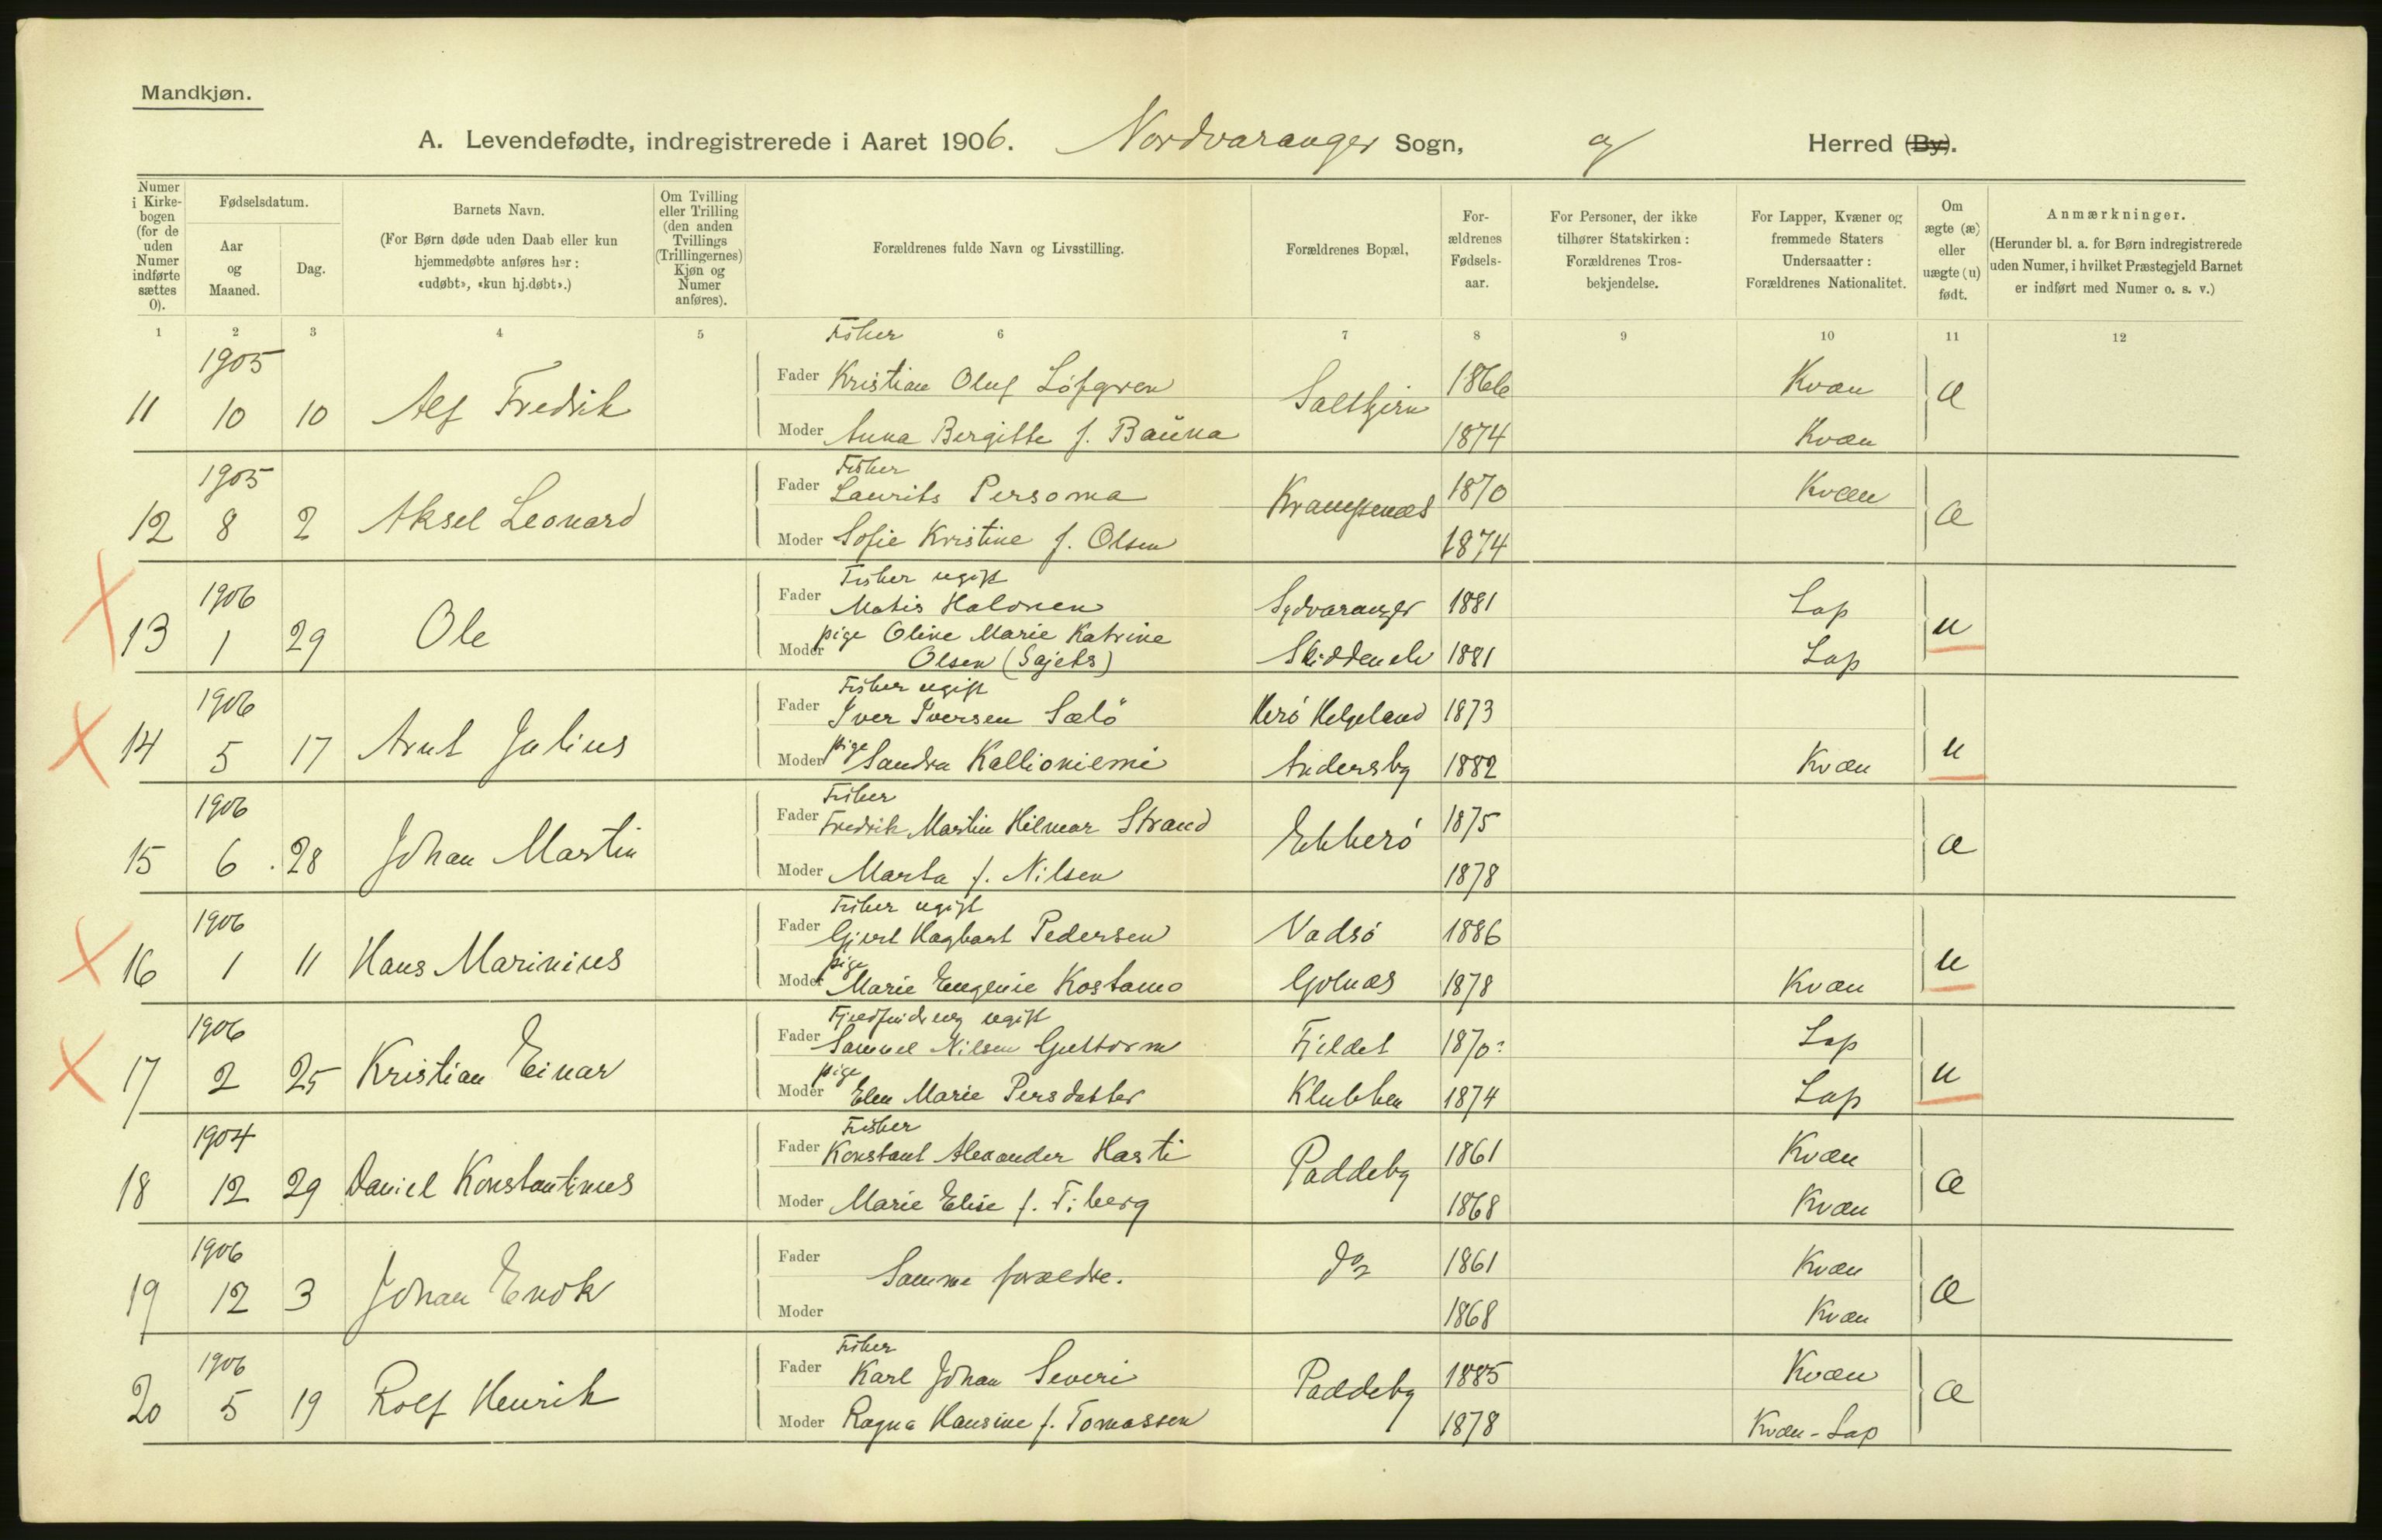 Mandkjøn.
A. Levendefødte, indregistrerede i Aaret 1906. Nordvaranger Sogn, og Herred (By).
Numer i Kirkebogen (for de uden Numer indførte sættes 0).
Fødselsdatum.
Aar og Maaned.
Dag.
Barnets Navn.
(For Børn døde uden Daab eller kun hjemmedøbte anføres her: «udøbt», «kun hj.døbt».)
Om Tvilling eller Trilling (den anden Tvillings (Trillingernes) Kjøn og Numer anføres).
Forældrenes fulde Navn og Livsstilling.
Forældrenes Bopæl,
Forældrenes Fødselsaar.
For Personer, der ikke tilhører Statskirken: Forældrenes Trosbekjendelse.
For Lapper, Kvæner og fremmede Staters Undersaatter: Forældrenes Nationalitet.
Om ægte (æ) eller uægte (u) født.
Anmærkninger.
(Herunder bl. a. for Børn indregistrerede uden Numer, i hvilket Præstegjeld Barnet er indført med Numer o. s. v.)
1 2 3 4 5 6 7 8 9 10 11 12
Fisker
11 1905 10 10 Alf Fredrik
Fader Kristian Oluf Löfgren Saltkjern 1866 Kvæn æ
Moder Anna Bergitte f. Bauna 1874 Kvæn
Fisker
12 1905 8 2 Aksel Leonard
Fader Laurits Persoma Krampenæs 1870 Kvæn æ
Moder Sofie Kristine f. Olsen 1874
Fisker ugift
13 1906 1 29 Ole
Fader Matis Halonen Sydvaranger 1881 Lap u
Moder pige Oline Marie Katrine
Olsen (Sajets) Skiddenelv 1881 Lap
Fisker ugift
14 1906 5 17 Arnt Julius
Fader Iver Iversen Sælö Herö Helgeland 1873 u
Moder pige Sandra Kallioniemi Andersby 1882 Kvæn
Fisker
15 1906 6 28 Johan Martin
Fader Fredrik Martin Hilmar Strand Ekkerö 1875 æ
Moder Marta f. Nilsen 1878
Fisker ugift
16 1906 1 11 Hans Marinius
Fader Gjert Hagbart Pedersen Vadsö 1886 u
Moder pige Marie Eugenie Kostamo Golnæs 1878 Kvæn
ugift
17 1906 2 25 Kristian Einar
Fader Samuel Nilsen Guttorm Fjeldet 1870? Lap u
Moder pige Elen Marie Persdatter Klubben 1874 Lap
Fisker
18 1904 12 29 Daniel Konstantinus
Fader Konstant Alexander Harti Paddeby 1861 Kvæn æ
Moder Marie Elise f. Fiberg 1868 Kvæn
19 1906 12 3 Johan Enok
Fader Samme forældre. do 1861 Kvæn æ
Moder 1868 Kvæn
Fisker
20 1906 5 19 Rolf Henrik
Fader Karl Johan Severi Paddeby 1885 Kvæn æ
Moder Ragna Hansine f. Tomassen 1878 Kvæn-Lap